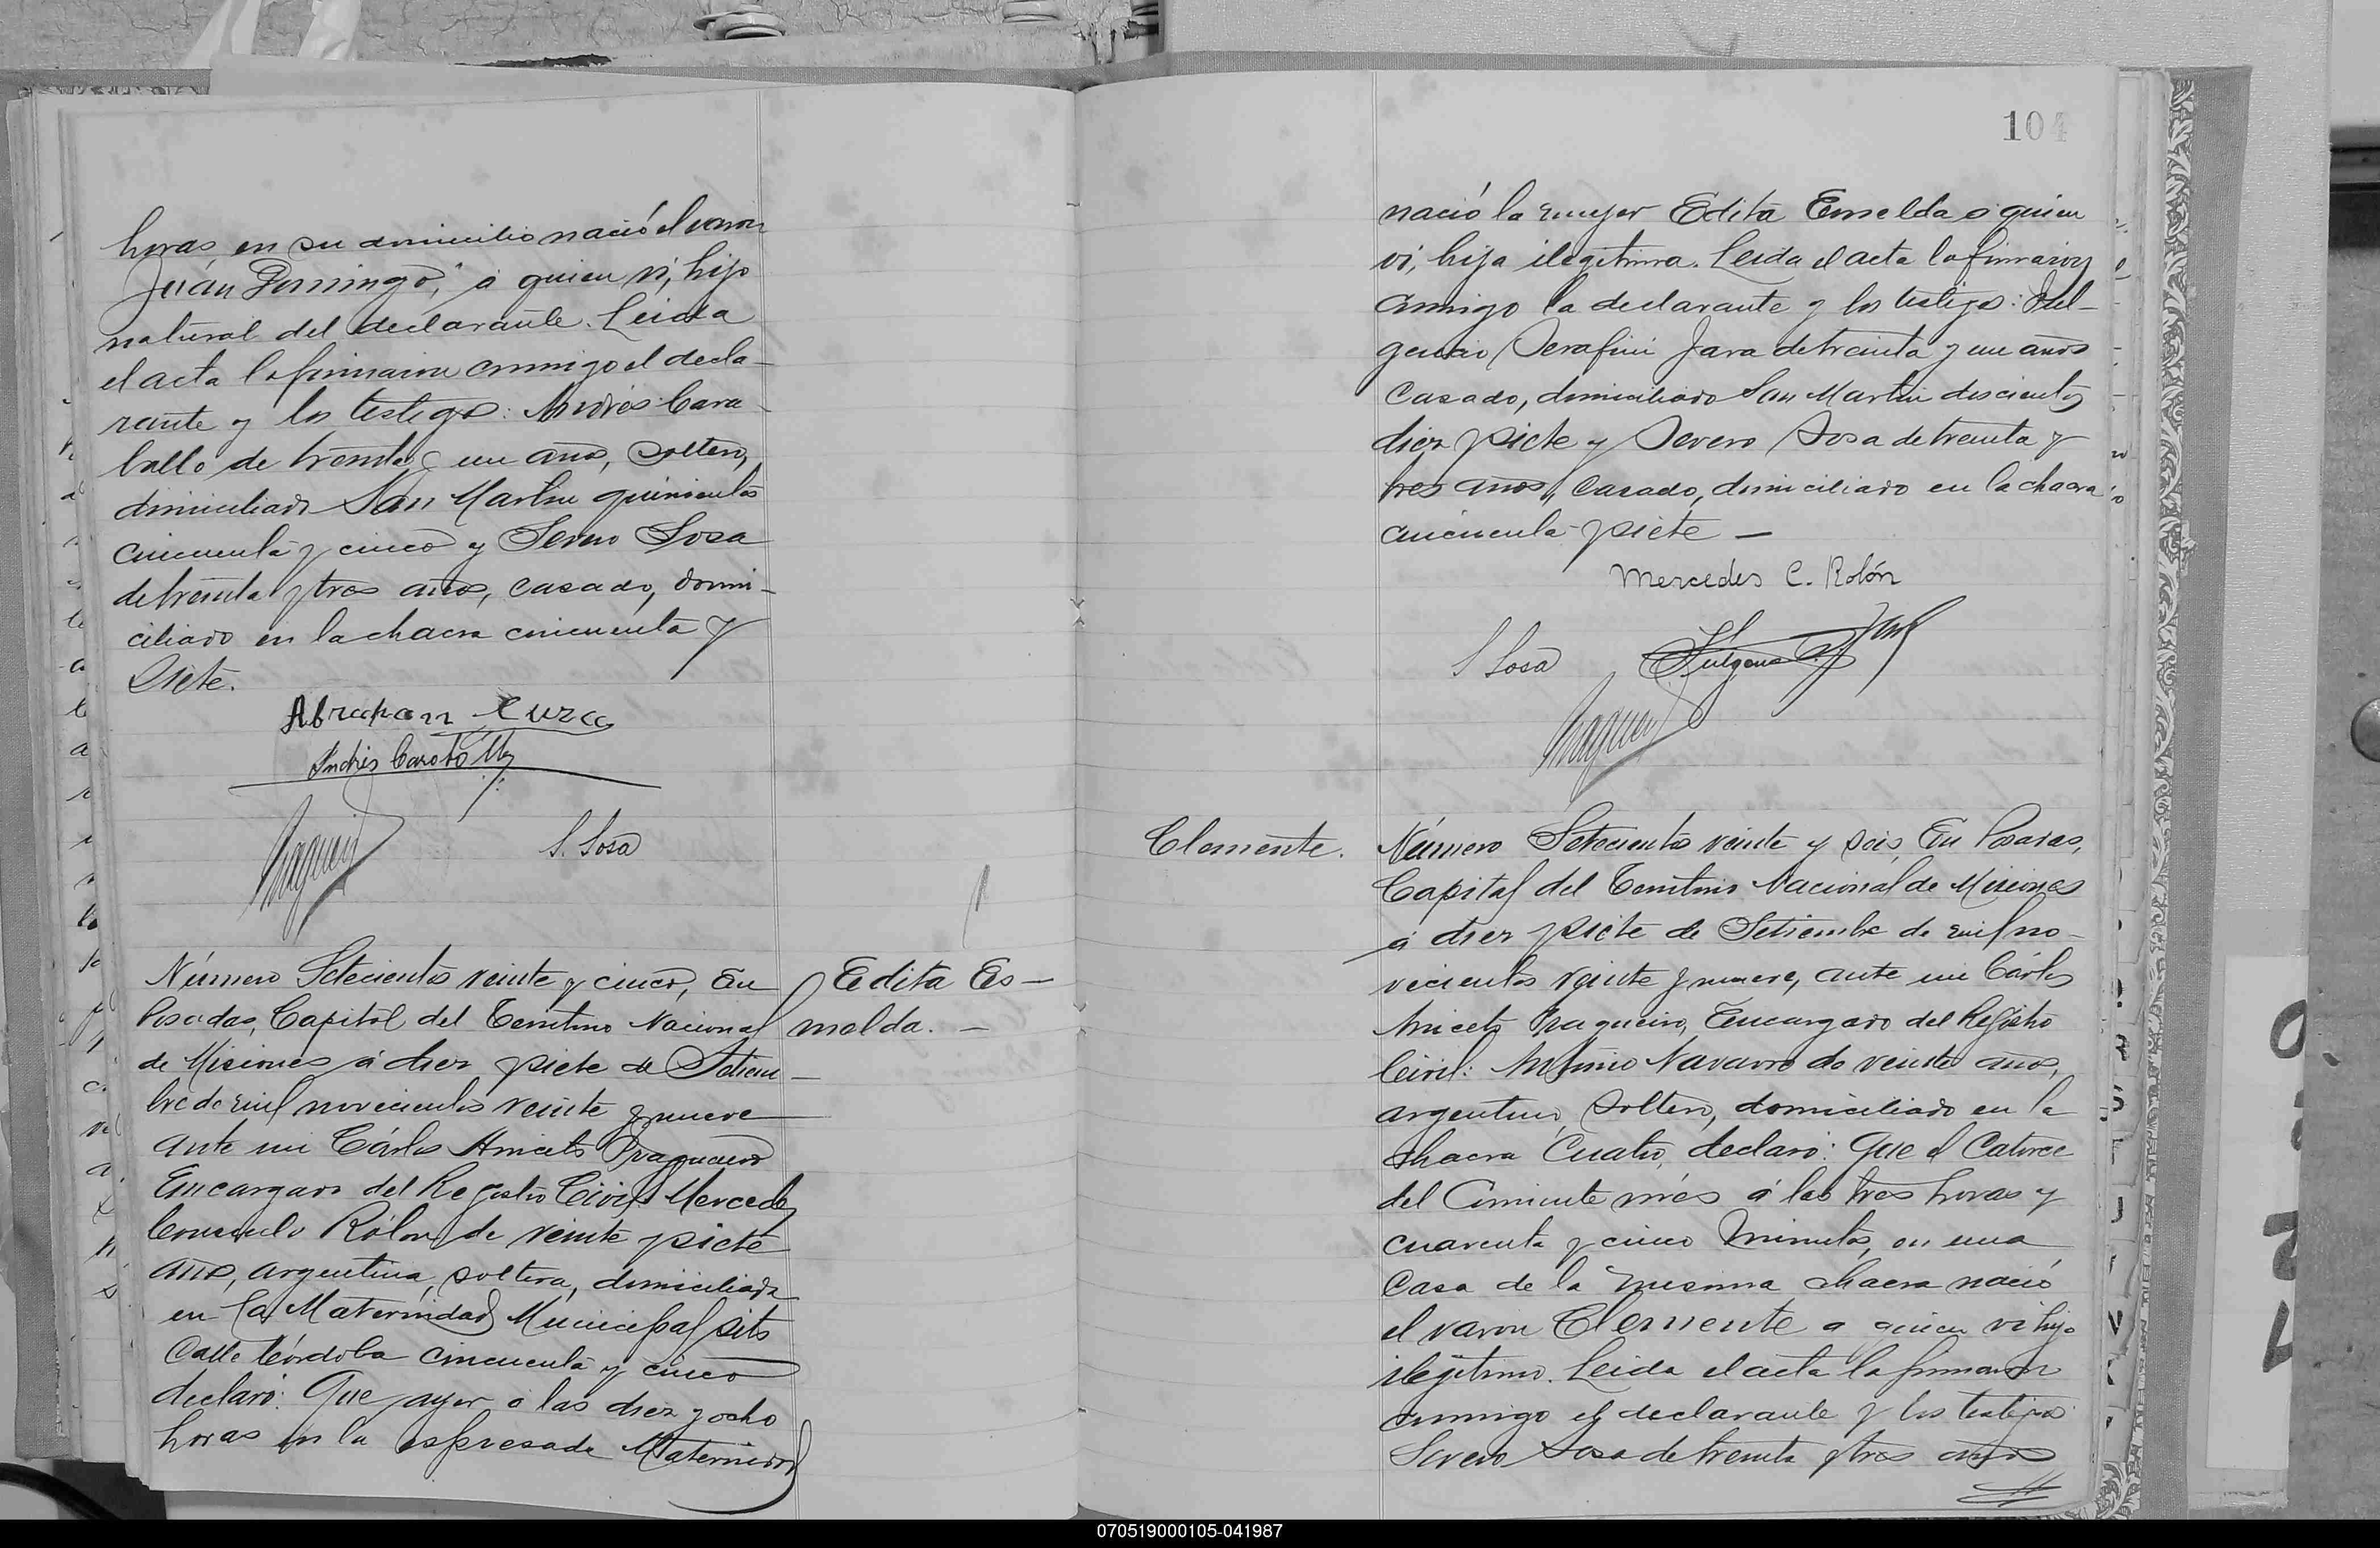 horas, en su domicilio nació el varon
"Juán Domingo," á quien ví, hijo
natural del declarante. Leida
el acta la firmaron conmigo el decla-
rante y los testigos: Andrés Cara
ballo de treinta y un años, soltero,
domiciliado San Martin quinientos
cincuenta y cinco y Severo Sosa
de treinta y tres años, casado, domi-
ciliado en la chacra cincuenta y
siete.
Abraham
Andrés Caraballo
S. Sosa
Número Setecientos veinte y cinco, En
Posadas, Capital del Territorio Nacional
de Misiones á diez y siete de Setiem-
bre de mil novecientos veinte y nueve
ante mi Cárlos Aniceto
Encargado del Registro Civil: Mercedes
Consuelo Rólon de veinte y siete
años, argentina, soltera, domiciliada
en la Maternidad Municipal sito
Calle Córdoba cincuenta y cinco
declaró: Que ayer á las diez y ocho
horas en la espresada Maternidad
Edita Es-
melda. -
104
nació la mujer Edita Esmelda á quien
ví, hija ilegítima. Leida el acta la firmaron
conmigo la declarante y los testigos: Ful-
gencio Serafin Jara de treinta y un años
Casado, domiciliado San Martin doscientos
diez y siete y Severo Sosa de treinta y
tres años, Casado, domiciliado en la chacra
cincuenta y siete -
Mercedes C. Rolón
S Sosa
Clemente.
Número Setecientos veinte y seis, En Posadas,
Capital del Territorio Nacional de Misiones
á diez y siete de Setiembre de mil no-
vecientos veinte y nueve, ante mi Cárlos
Aniceto Encargado del Registro
Civil: Antonio Navarro de veinte años,
argentino, soltero, domiciliado en la
chacra Cuatro, declaró: Que el Catorce
del Corriente més á las tres horas y
cuarenta y cinco minutos, en una
Casa de la misma chacra nació
el varon Clemente a quien ví hijo
ilegítimo. Leida el acta la firmaron
conmigo el declarante y los testigos:
Severo Sosa de treinta y tres años
070519000105-041987